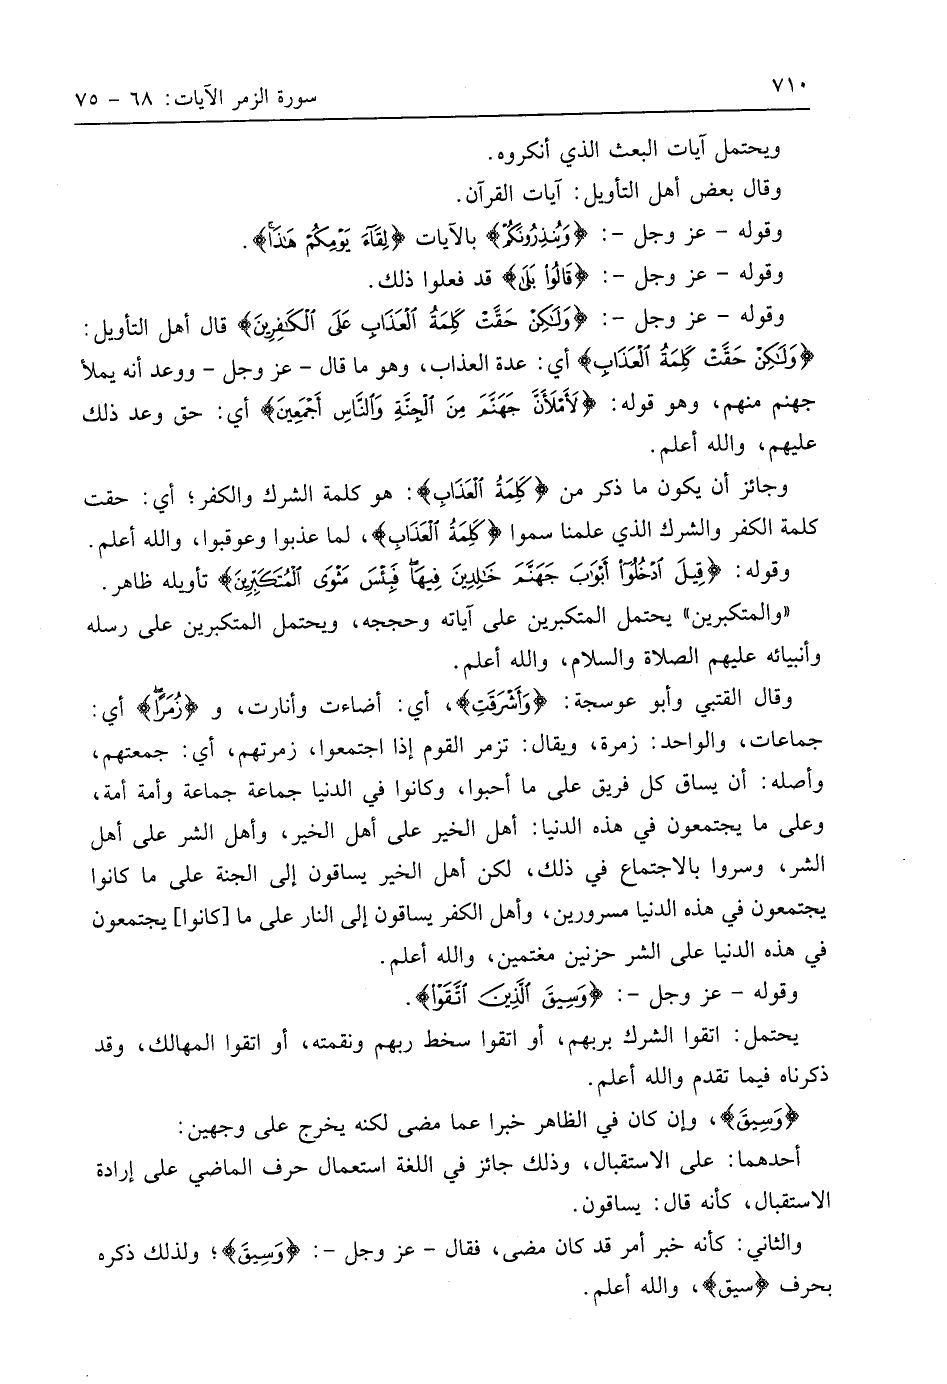 ٧١٠
سورة الزمر الآيات: ٦٨ - ٧٥
ويحتمل آيات البعث الذي أنكروه.
وقال بعض أهل التأويل: آيات القرآن.
وقوله - عز وجل -: ﴿وَيُنذِرُونَكُمْ﴾ بالآيات ﴿لِقَآءَ يَوْمِكُمْ هَٰذَا﴾.
وقوله - عز وجل -: ﴿قَالُوا۟ بَلَىٰ﴾ قد فعلوا ذلك.
وقوله - عز وجل -: ﴿وَلَٰكِنْ حَقَّتْ كَلِمَةُ ٱلْعَذَابِ عَلَى ٱلْكَٰفِرِينَ﴾ قال أهل التأويل:
﴿وَلَٰكِنْ حَقَّتْ كَلِمَةُ ٱلْعَذَابِ﴾ أي: عدة العذاب، وهو ما قال - عز وجل - ووعد أنه يملأ
جهنم منهم، وهو قوله: ﴿لَأَمْلَأَنَّ جَهَنَّمَ مِنَ ٱلْجِنَّةِ وَٱلنَّاسِ أَجْمَعِينَ﴾ أي: حق وعد ذلك
عليهم، والله أعلم.
وجائز أن يكون ما ذكر من ﴿كَلِمَةُ ٱلْعَذَابِ﴾: هو كلمة الشرك والكفر؛ أي: حقت
كلمة الكفر والشرك الذي علمنا سموا ﴿كَلِمَةُ ٱلْعَذَابِ﴾، لما عذبوا وعوقبوا، والله أعلم.
وقوله: ﴿قِيلَ ٱدْخُلُوٓا۟ أَبْوَٰبَ جَهَنَّمَ خَٰلِدِينَ فِيهَا ۖ فَبِئْسَ مَثْوَى ٱلْمُتَكَبِّرِينَ﴾ تأويله ظاهر.
«والمتكبرين» يحتمل المتكبرين على آياته وحججه، ويحتمل المتكبرين على رسله
وأنبيائه عليهم الصلاة والسلام، والله أعلم.
وقال القتبي وأبو عوسجة: ﴿وَأَشْرَقَتِ﴾، أي: أضاءت وأنارت، و ﴿زُمَرًا ۖ﴾ أي:
جماعات، والواحد: زمرة، ويقال: تزمر القوم إذا اجتمعوا، زمرتهم، أي: جمعتهم،
وأصله: أن يساق كل فريق على ما أحبوا، وكانوا في الدنيا جماعة جماعة وأمة أمة،
وعلى ما يجتمعون في هذه الدنيا: أهل الخير على أهل الخير، وأهل الشر على أهل
الشر، وسروا بالاجتماع في ذلك، لكن أهل الخير يساقون إلى الجنة على ما كانوا
يجتمعون في هذه الدنيا مسرورين، وأهل الكفر يساقون إلى النار على ما [كانوا] يجتمعون
في هذه الدنيا على الشر حزنين مغتمين، والله أعلم.
وقوله - عز وجل -: ﴿وَسِيقَ ٱلَّذِينَ ٱتَّقَوْا۟﴾.
يحتمل: اتقوا الشرك بربهم، أو اتقوا سخط ربهم ونقمته، أو اتقوا المهالك، وقد
ذكرناه فيما تقدم والله أعلم.
﴿وَسِيقَ﴾، وإن كان في الظاهر خبرا عما مضى لكنه يخرج على وجهين:
أحدهما: على الاستقبال، وذلك جائز في اللغة استعمال حرف الماضي على إرادة
الاستقبال، كأنه قال: يساقون.
والثاني: كأنه خبر أمر قد كان مضى، فقال - عز وجل -: ﴿وَسِيقَ﴾؛ ولذلك ذكره
بحرف ﴿سيق﴾، والله أعلم.